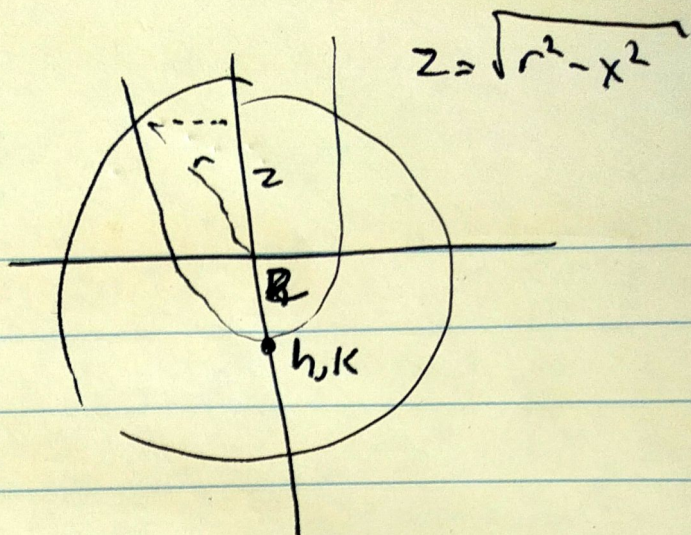 z = √(r² - x²)
r
z
h, k